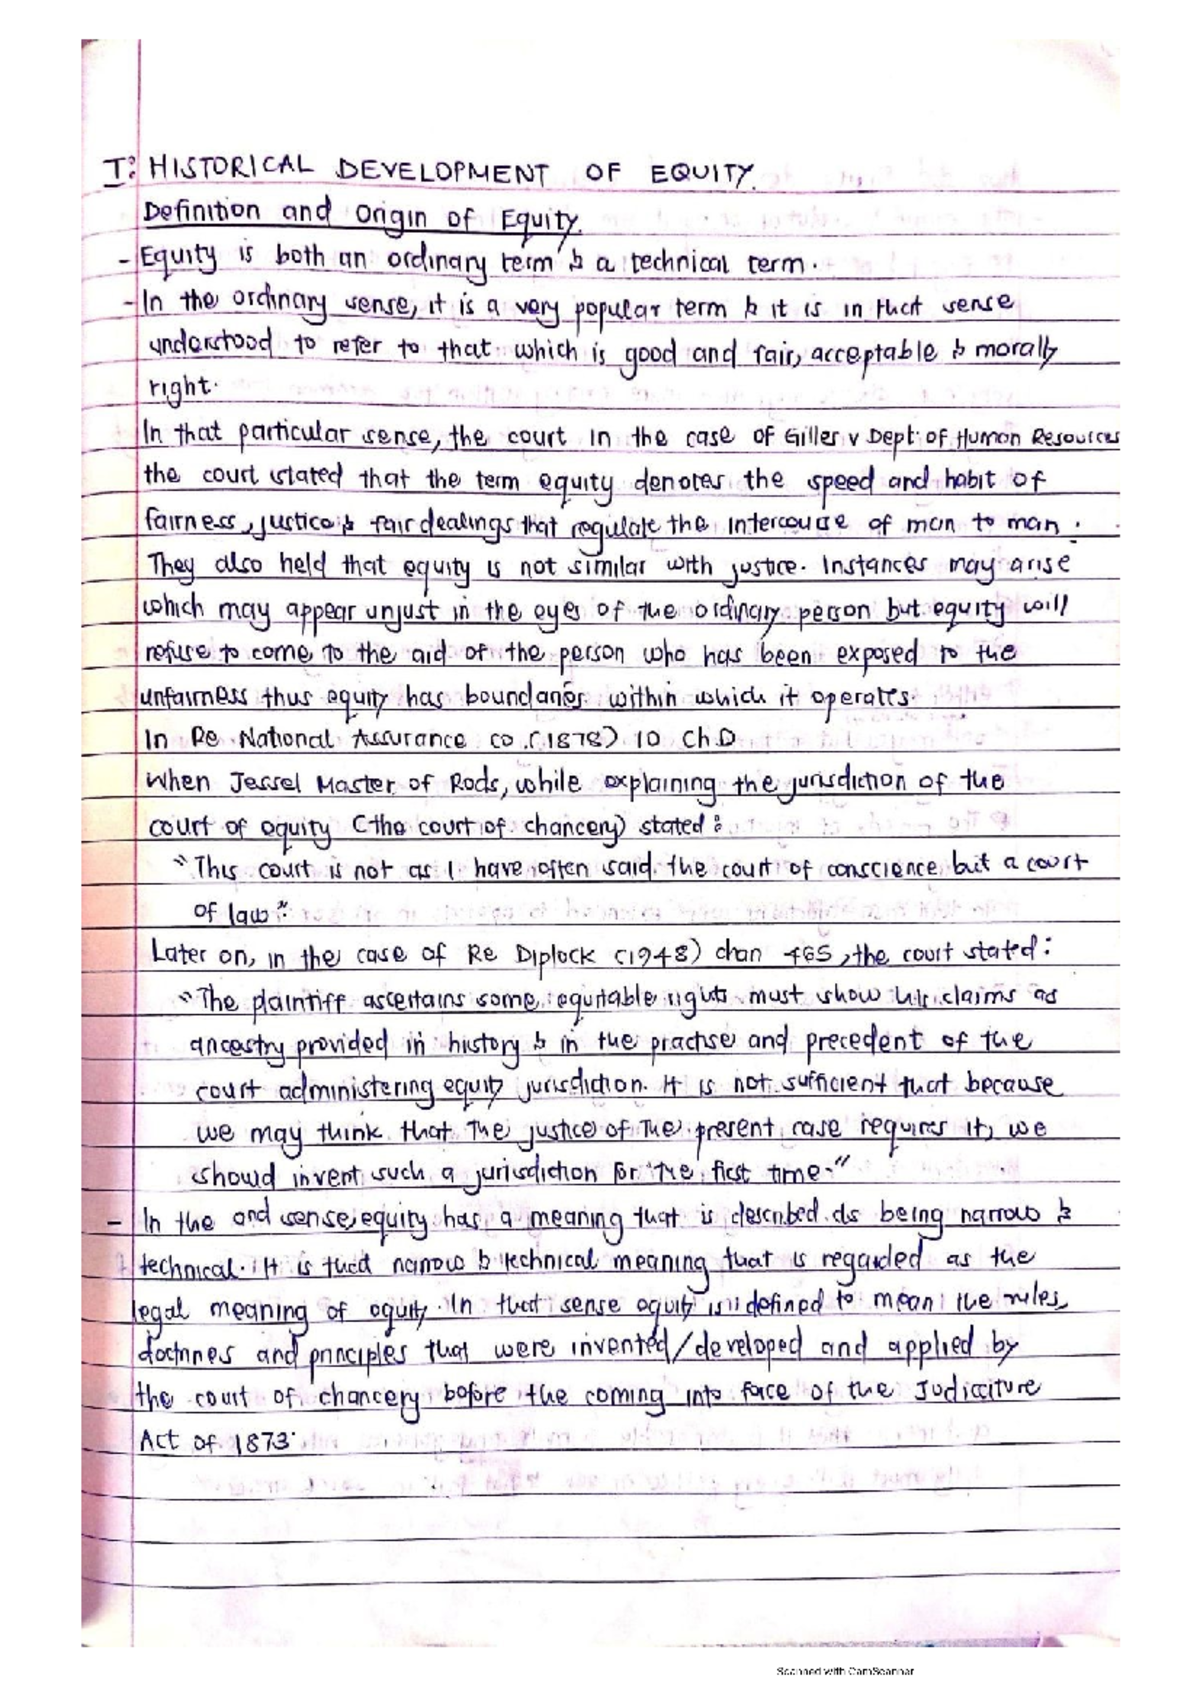 I: HISTORICAL DEVELOPMENT OF EQUITY.
Definition and Origin of Equity.
- Equity is both an ordinary term & a technical term.
- In the ordinary sense, it is a very popular term & it is in that sense
understood to refer to that which is good and fair, acceptable & morally
right.
In that particular sense, the court in the case of Giller v Dept. of Human Resources
the court stated that the term equity denotes the speed and habit of
fairness, justice & fair dealings that regulate the intercourse of man to man.
They also held that equity is not similar with justice. Instances may arise
which may appear unjust in the eyes of the ordinary person but equity will
refuse to come to the aid of the person who has been exposed to the
unfairness thus equity has boundaries within which it operates.
In Re National Assurance co. (1878) 10 Ch.D
When Jessel Master of Rods, while explaining the jurisdiction of the
court of equity (the court of chancery) stated:
"This court is not as I have often said the court of conscience but a court
of law"
Later on, in the case of Re Diplock (1948) chan 465, the court stated:
"The plaintiff ascertains some equitable rights must show his claims as
ancestry provided in history & in the practise and precedent of the
court administering equity jurisdiction. It is not sufficient that because
we may think that the justice of the present case requires it, we
should invent such a jurisdiction for the first time."
- In the and sense, equity has a meaning that is described as being narrow &
technical. It is that narrow & technical meaning that is regarded as the
legal meaning of equity. In that sense equity is defined to mean the rules,
doctrines and principles that were invented/developed and applied by
the court of chancery before the coming into face of the Judicature
Act of 1873.
Scanned with CamScanner